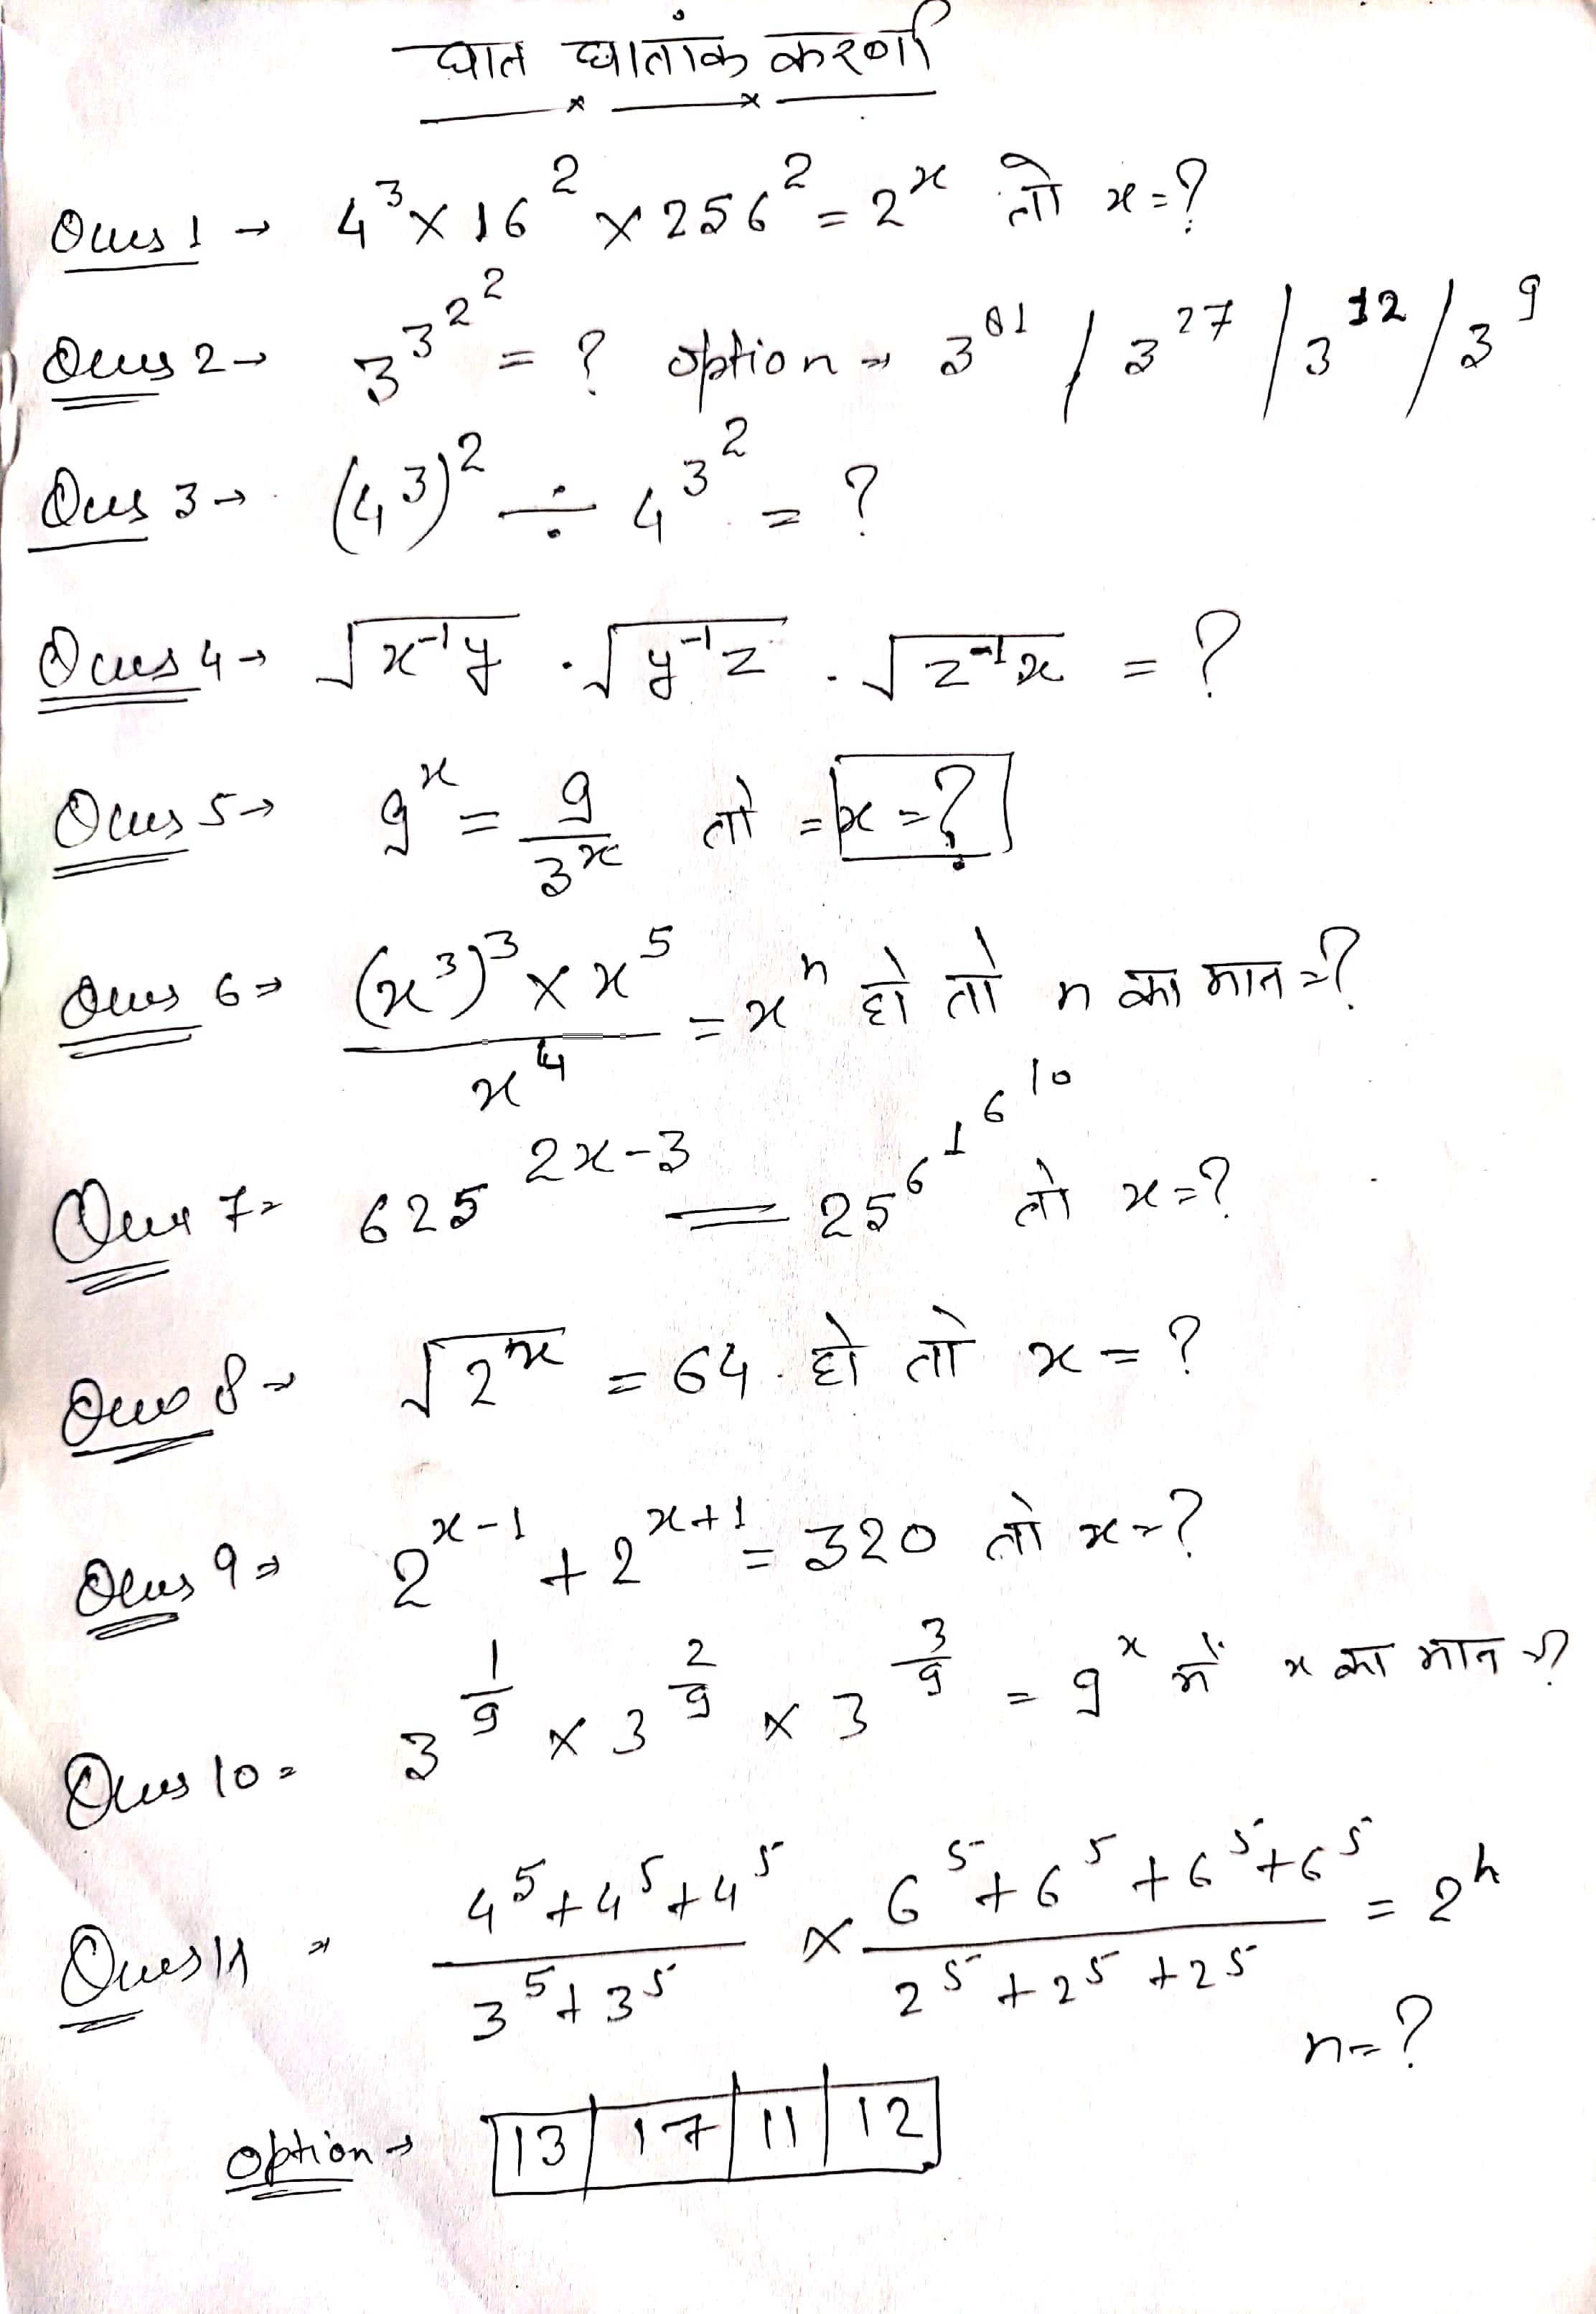 घात घातांक करणी
Ques 1 → 4³ × 16² × 256² = 2ˣ तो x = ?
Ques 2 → 3^3^2^2 = ? option → 3⁸¹ / 3²⁷ / 3¹² / 3⁹
Ques 3 → (4³)² ÷ 4^3^2 = ?
Ques 4 → √(x⁻¹y) . √(y⁻¹z) . √(z⁻¹x) = ?
Ques 5 → 9ˣ = 9/3ˣ तो = x = ?
Ques 6 → ((x³)³ × x⁵)/x⁴ = xⁿ हो तो n का मान = ?
Ques 7 = 625^(2x-3) = 25^6^1^6^10 तो x = ?
Ques 8 → √(2ˣ) = 64 . हो तो x = ?
Ques 9 → 2^(x-1) + 2^(x+1) = 320 तो x = ?
Ques 10 = 3^(1/9) × 3^(2/9) × 3^(3/9) = 9ˣ में x का मान = ?
Ques 11 → (4⁵+4⁵+4⁵)/(3⁵+3⁵) × (6⁵+6⁵+6⁵+6⁵)/(2⁵+2⁵+2⁵) = 2ⁿ
n = ?
option → 13 | 17 | 11 | 12